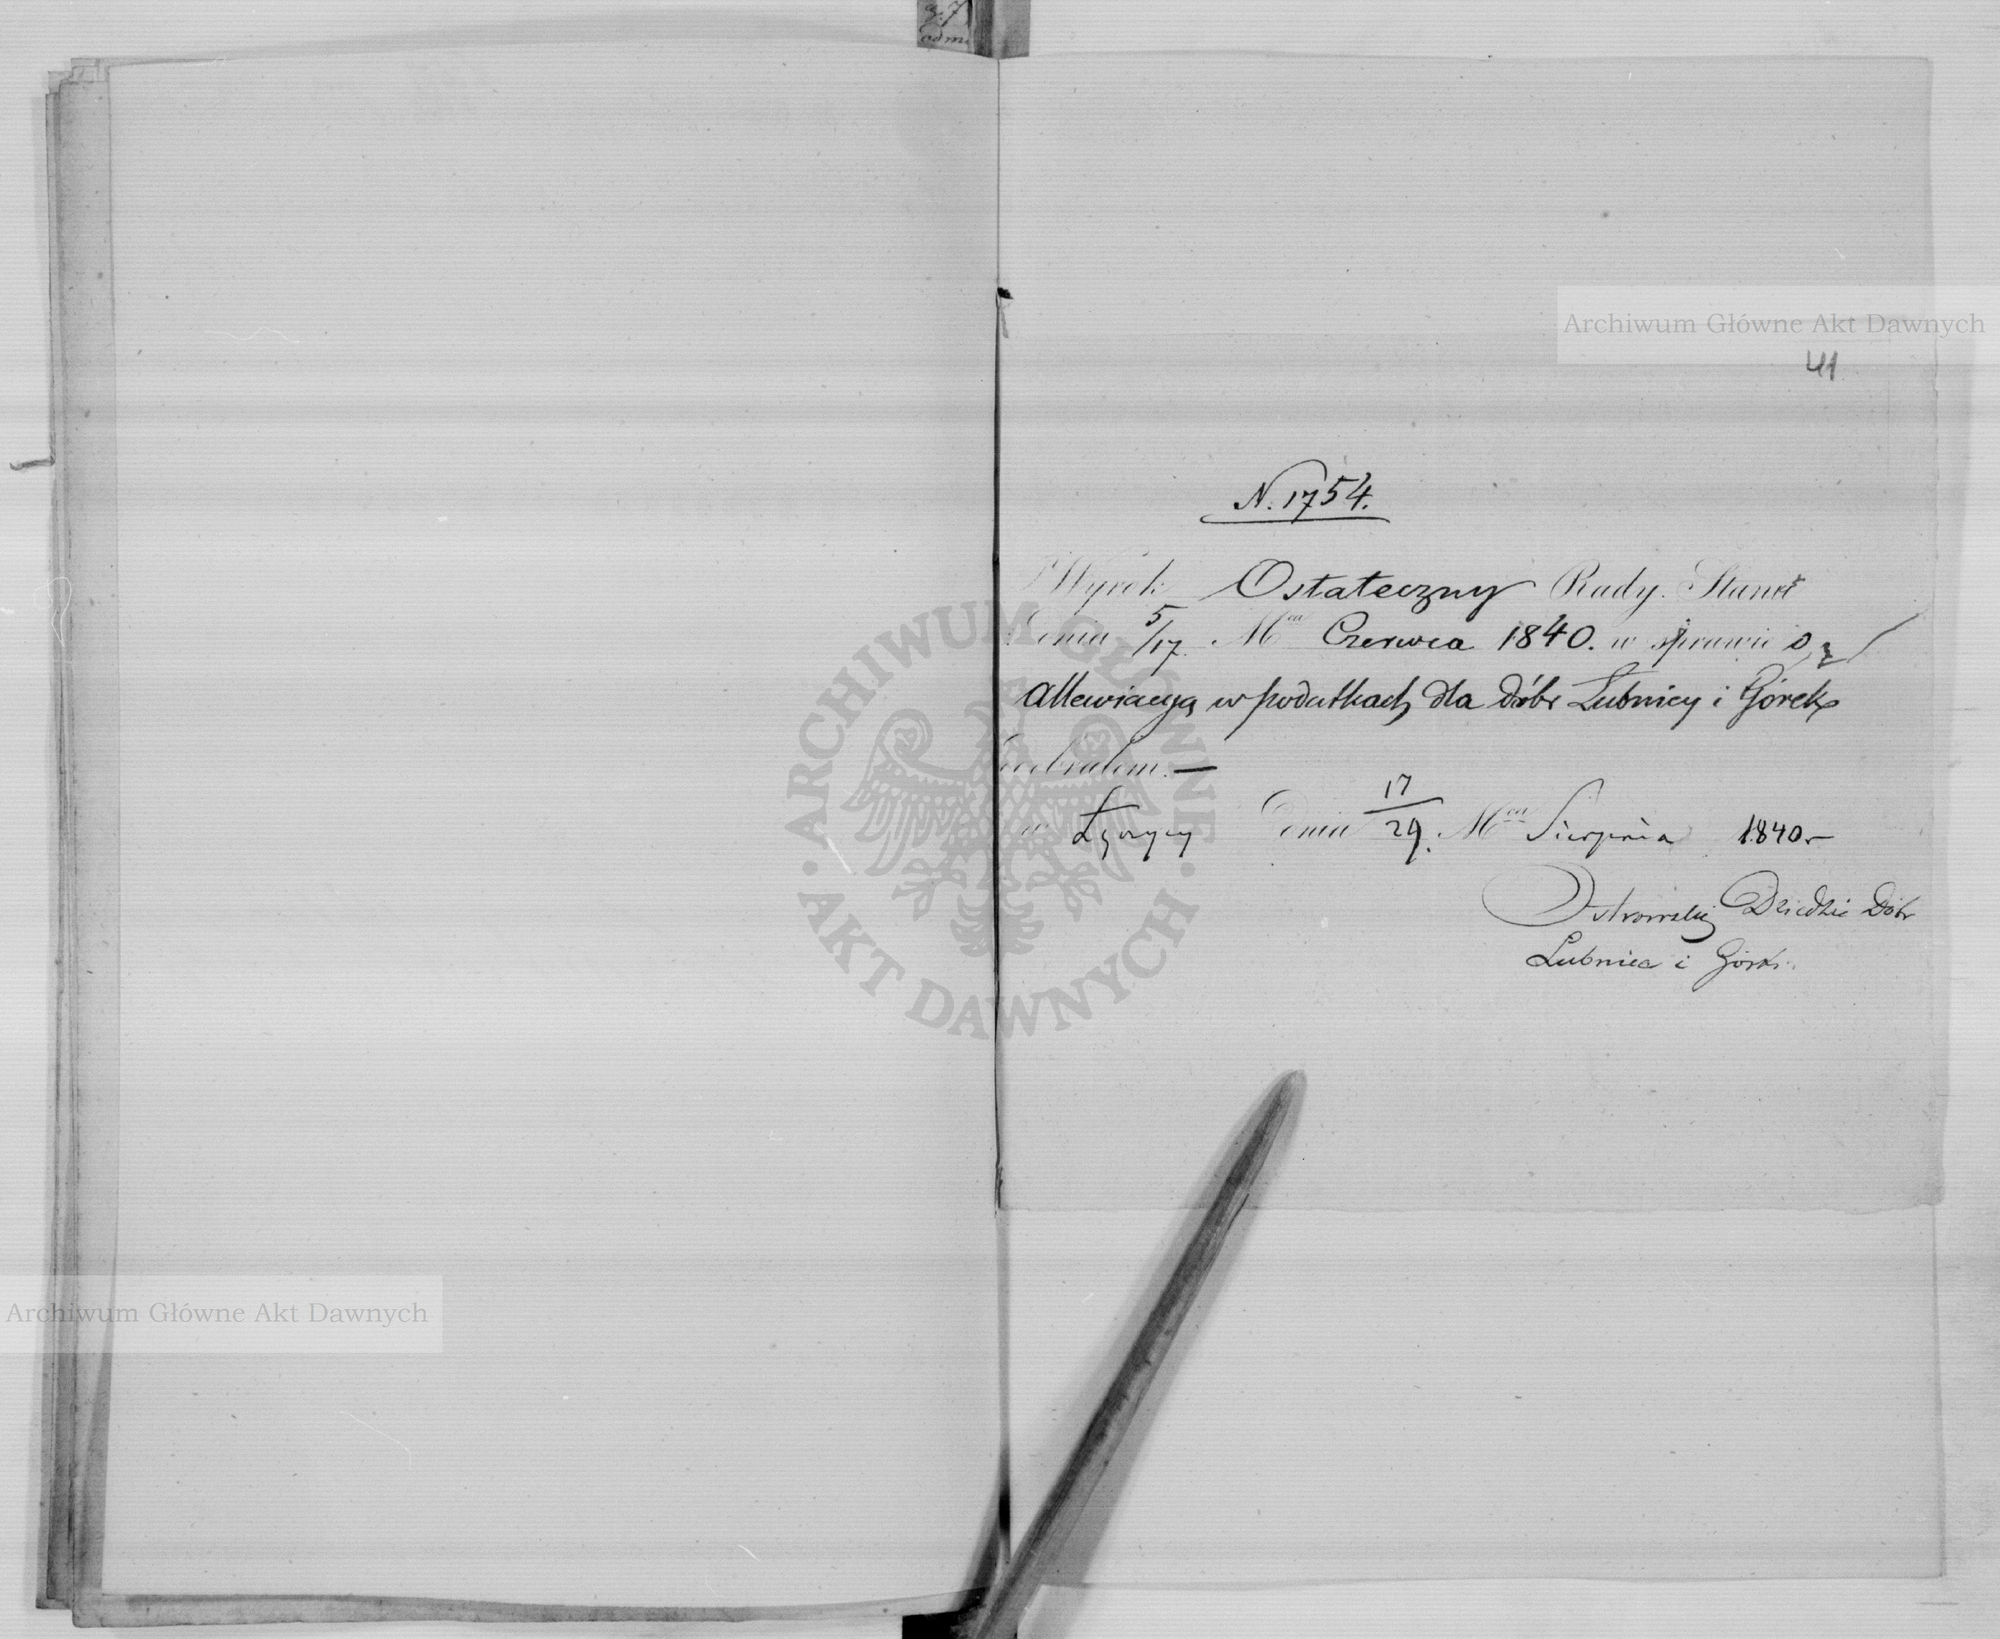 Archiwum Główne Akt Dawnych
41
N. 1754.
Wyrok Ostateczny Rady Stanu
Dnia 5/17 Mca Czerwca 1840. w sprawie o
allewiacyą w podatkach dla dóbr Lubnicy i Górek
odebrałem. —
w Dnia 17/29. Mca Sierpnia 1840 —
Ostrowski Dziedzic Dóbr
Lubnica i Górki
ARCHIWUM GŁÓWNE · AKT DAWNYCH ·
Archiwum Główne Akt Dawnych